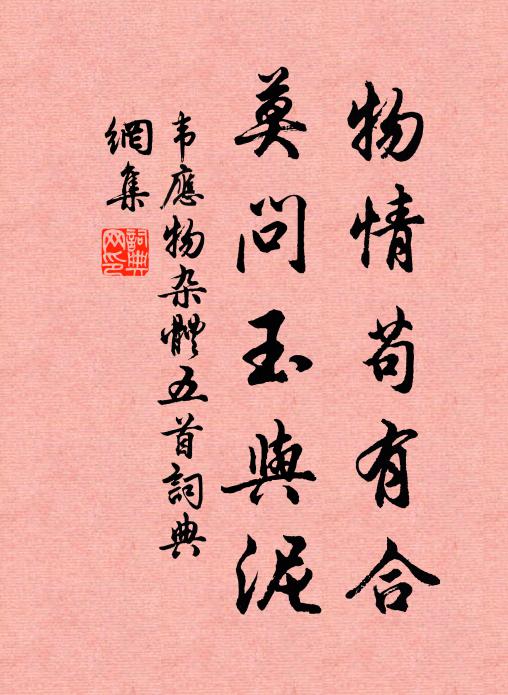 物情苟有合
莫問玉與泥
韦應物杂體五首詞典
網集
詞典
网印